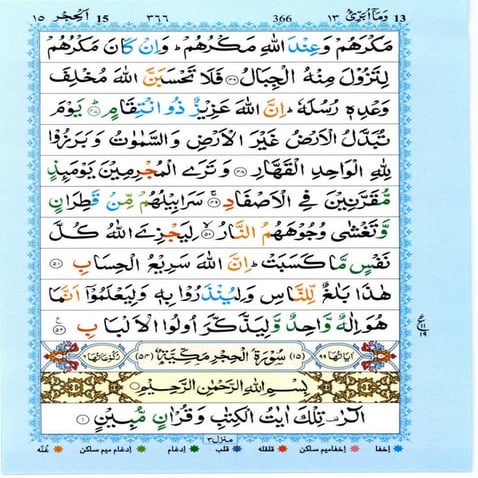 وما ابرئ ١٣ 13 366 ٣٦٦ الحجر ١٥ 15
مَكْرَهُمْ وَعِنْدَ اللّٰهِ مَكْرُهُمْ ؕ وَاِنْ كَانَ مَكْرُهُمْ
لِتَزُوْلَ مِنْهُ الْجِبَالُ ﴿۴۶﴾ فَلَا تَحْسَبَنَّ اللّٰهَ مُخْلِفَ
وَعْدِهٖ رُسُلَهٗ ؕ اِنَّ اللّٰهَ عَزِيْزٌ ذُو انْتِقَامٍ ﴿۴۷﴾ يَوْمَ
تُبَدَّلُ الْاَرْضُ غَيْرَ الْاَرْضِ وَالسَّمٰوٰتُ وَبَرَزُوْا
لِلّٰهِ الْوَاحِدِ الْقَهَّارِ ﴿۴۸﴾ وَتَرَى الْمُجْرِمِيْنَ يَوْمَىِٕذٍ
مُّقَرَّنِيْنَ فِي الْاَصْفَادِ ﴿۴۹﴾ سَرَابِيْلُهُمْ مِّنْ قَطِرَانٍ
وَّتَغْشٰى وُجُوْهَهُمُ النَّارُ ﴿۵۰﴾ لِيَجْزِيَ اللّٰهُ كُلَّ
نَفْسٍ مَّا كَسَبَتْ ؕ اِنَّ اللّٰهَ سَرِيْعُ الْحِسَابِ ﴿۵۱﴾
هٰذَا بَلٰغٌ لِّلنَّاسِ وَلِيُنْذَرُوْا بِهٖ وَلِيَعْلَمُوْۤا اَنَّمَا
هُوَ اِلٰهٌ وَّاحِدٌ وَّلِيَذَّكَّرَ اُولُوا الْاَلْبَابِ ﴿۵۲﴾
اٰيَاتُهَا ٩٩ (١٥) سُوْرَةُ الْحِجْرِ مَكِّيَّةٌ (٥٤) رُكُوْعَاتُهَا ٦
بِسْمِ اللّٰهِ الرَّحْمٰنِ الرَّحِيْمِ
الٓرٰ ۫ تِلْكَ اٰيٰتُ الْكِتٰبِ وَقُرْاٰنٍ مُّبِيْنٍ ﴿۱﴾
منزل ٣
اخفا اخفا میم ساکن قلقلہ قلب ادغام ادغام میم ساکن غنّہ